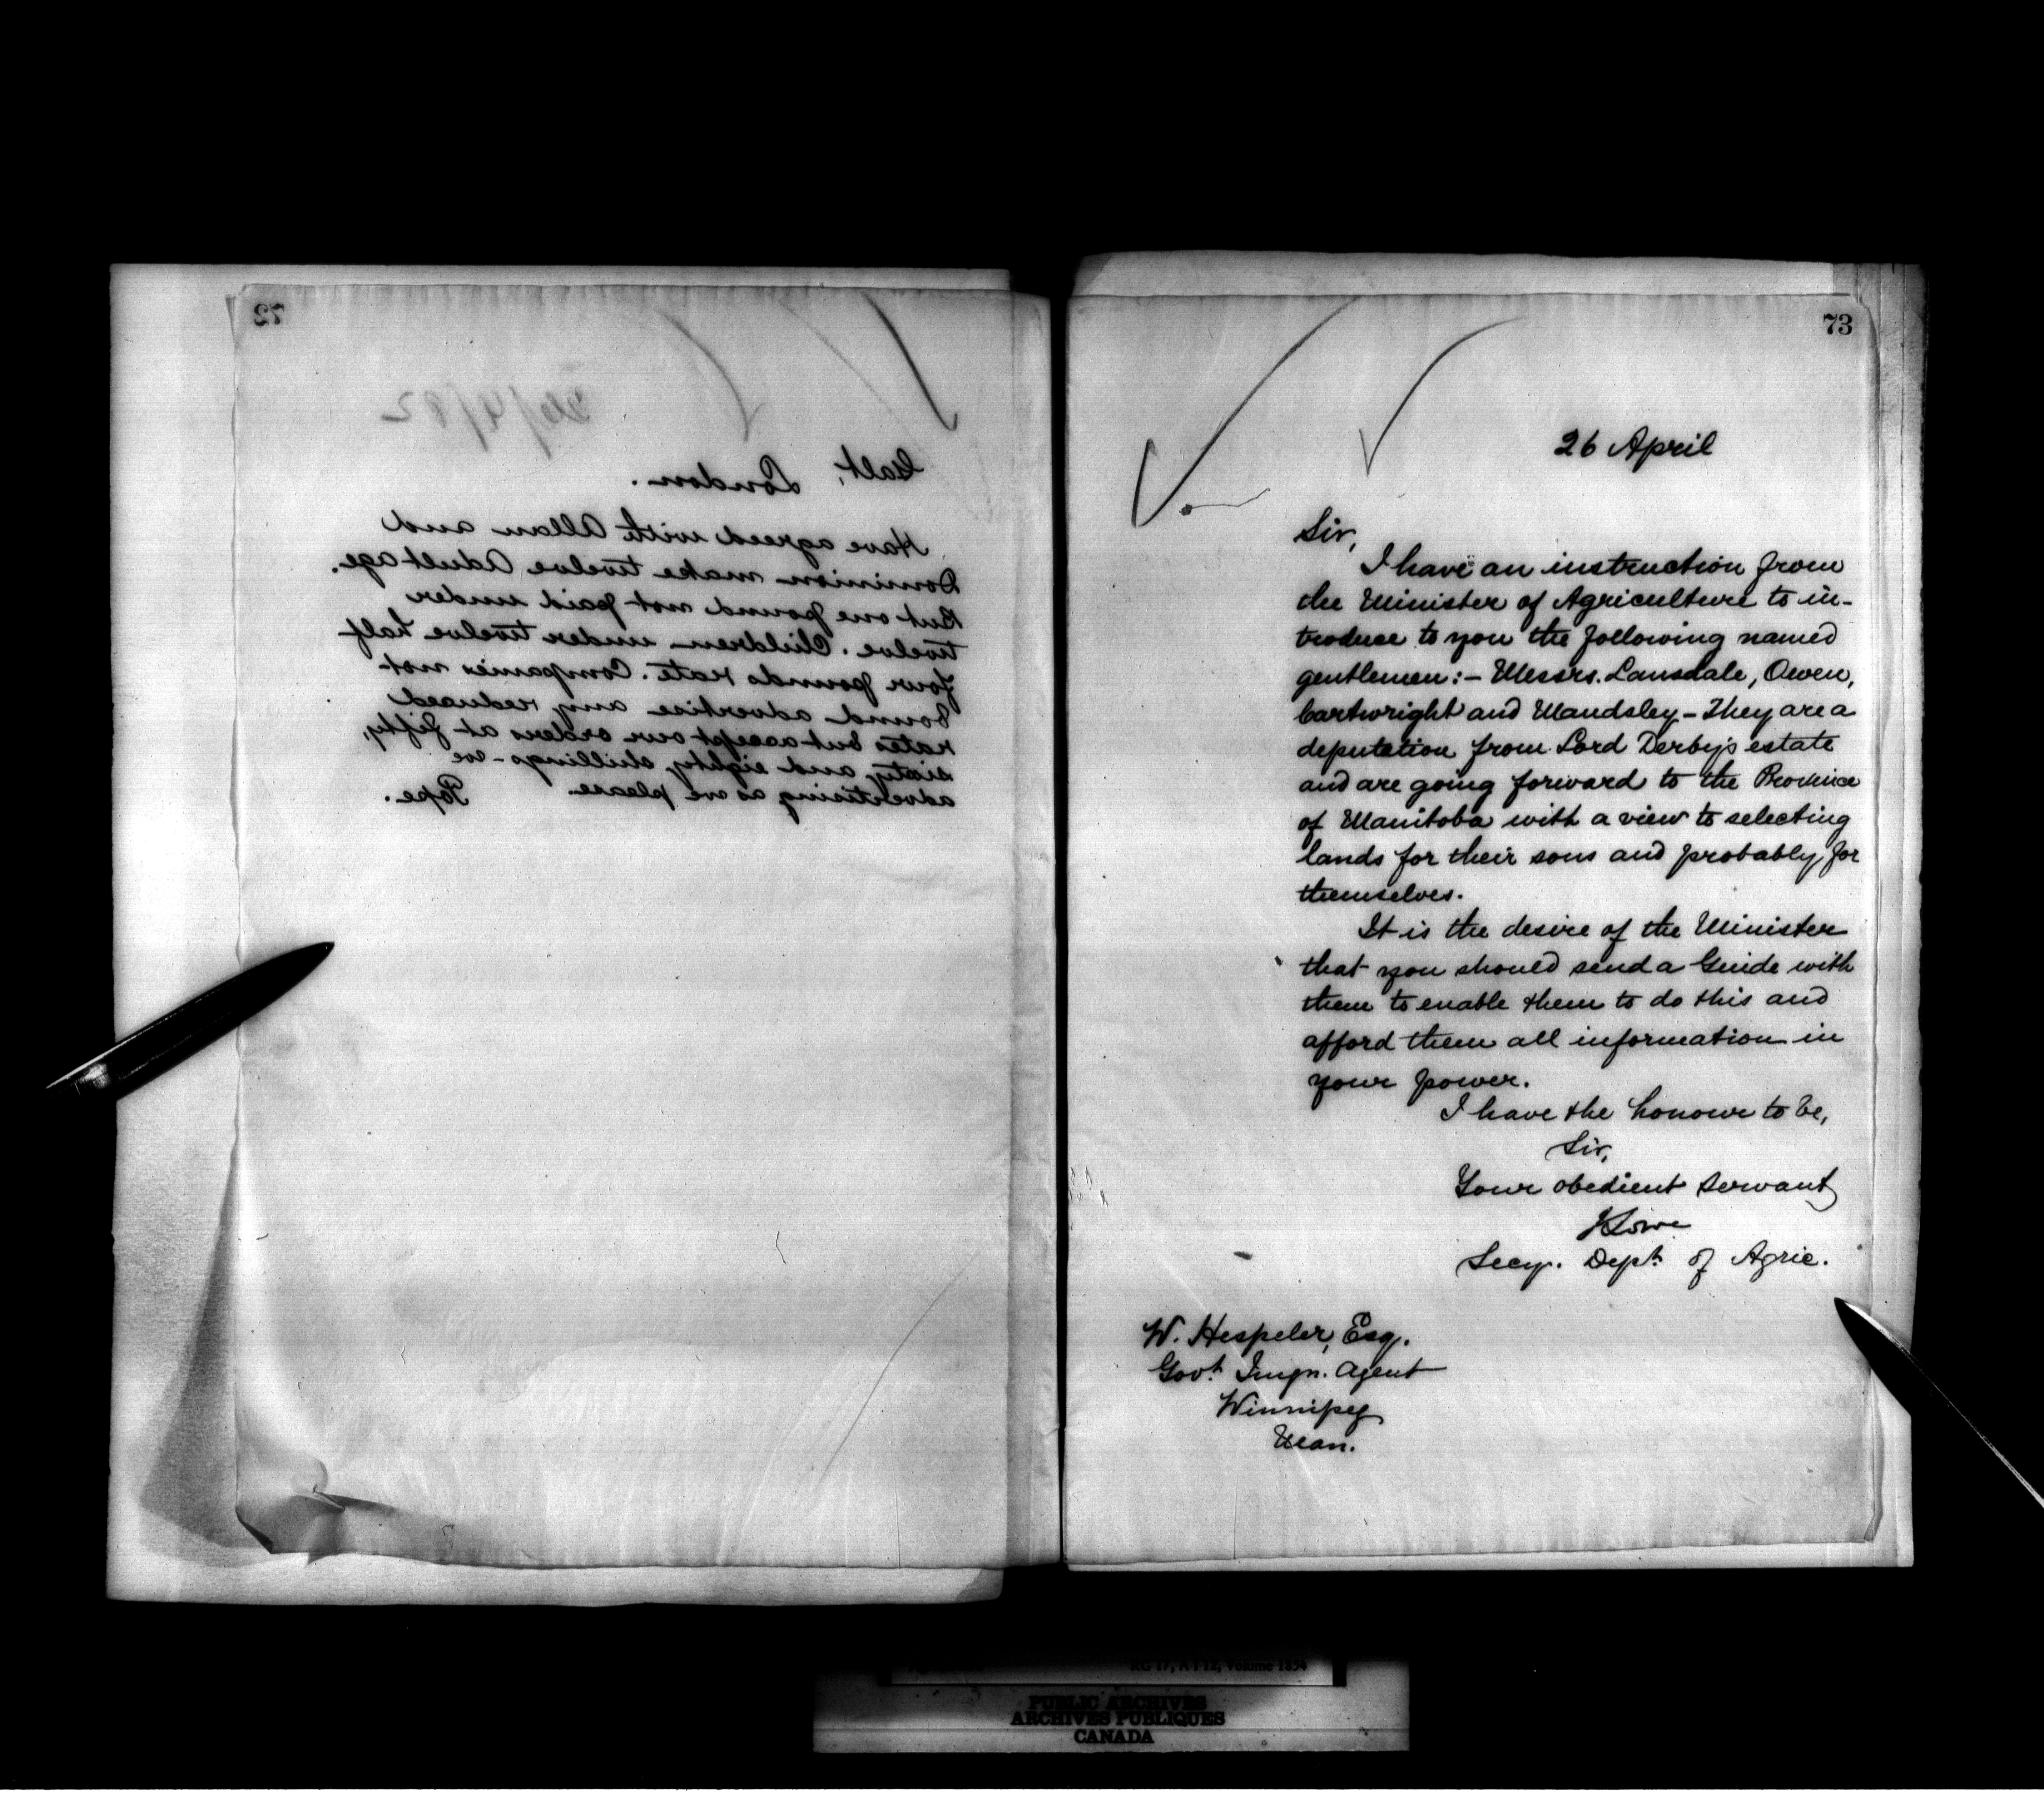 72
26/4/82
Galt,
London.
Have agreed with Allan and
Dominion make twelve Adult age.
But one pound not paid under
twelve. Children under twelve half
four pounds rate. Companies not
bound advertise any reduced
rates but accept our orders at fifty,
sixty and eighty shillings - we
advertising as we please.
Pope.
73
26 April
Sir,
I have an instruction from
the Minister of Agriculture to in-
troduce to you the following named
gentlemen:- Messrs. Lansdale, Owen,
Cartwright and Mandsley - They are a
deputation from Lord Derby's estate
and are going forward to the Province
of Manitoba with a view to selecting
lands for their sons and probably for
themselves.
It is the desire of the Minister
that you should send a Guide with
them to enable them to do this and
afford them all information in
your power.
I have the honour to be,
Sir,
Your obedient servant
J Lowe
Secy. Dept. of Agric.
W. Hespeler, Esq.
Govt. Imgn. Agent
Winnipeg
Man.
RG 17, A I 12, Volume 1634
PUBLIC ARCHIVES
ARCHIVES PUBLIQUES
CANADA